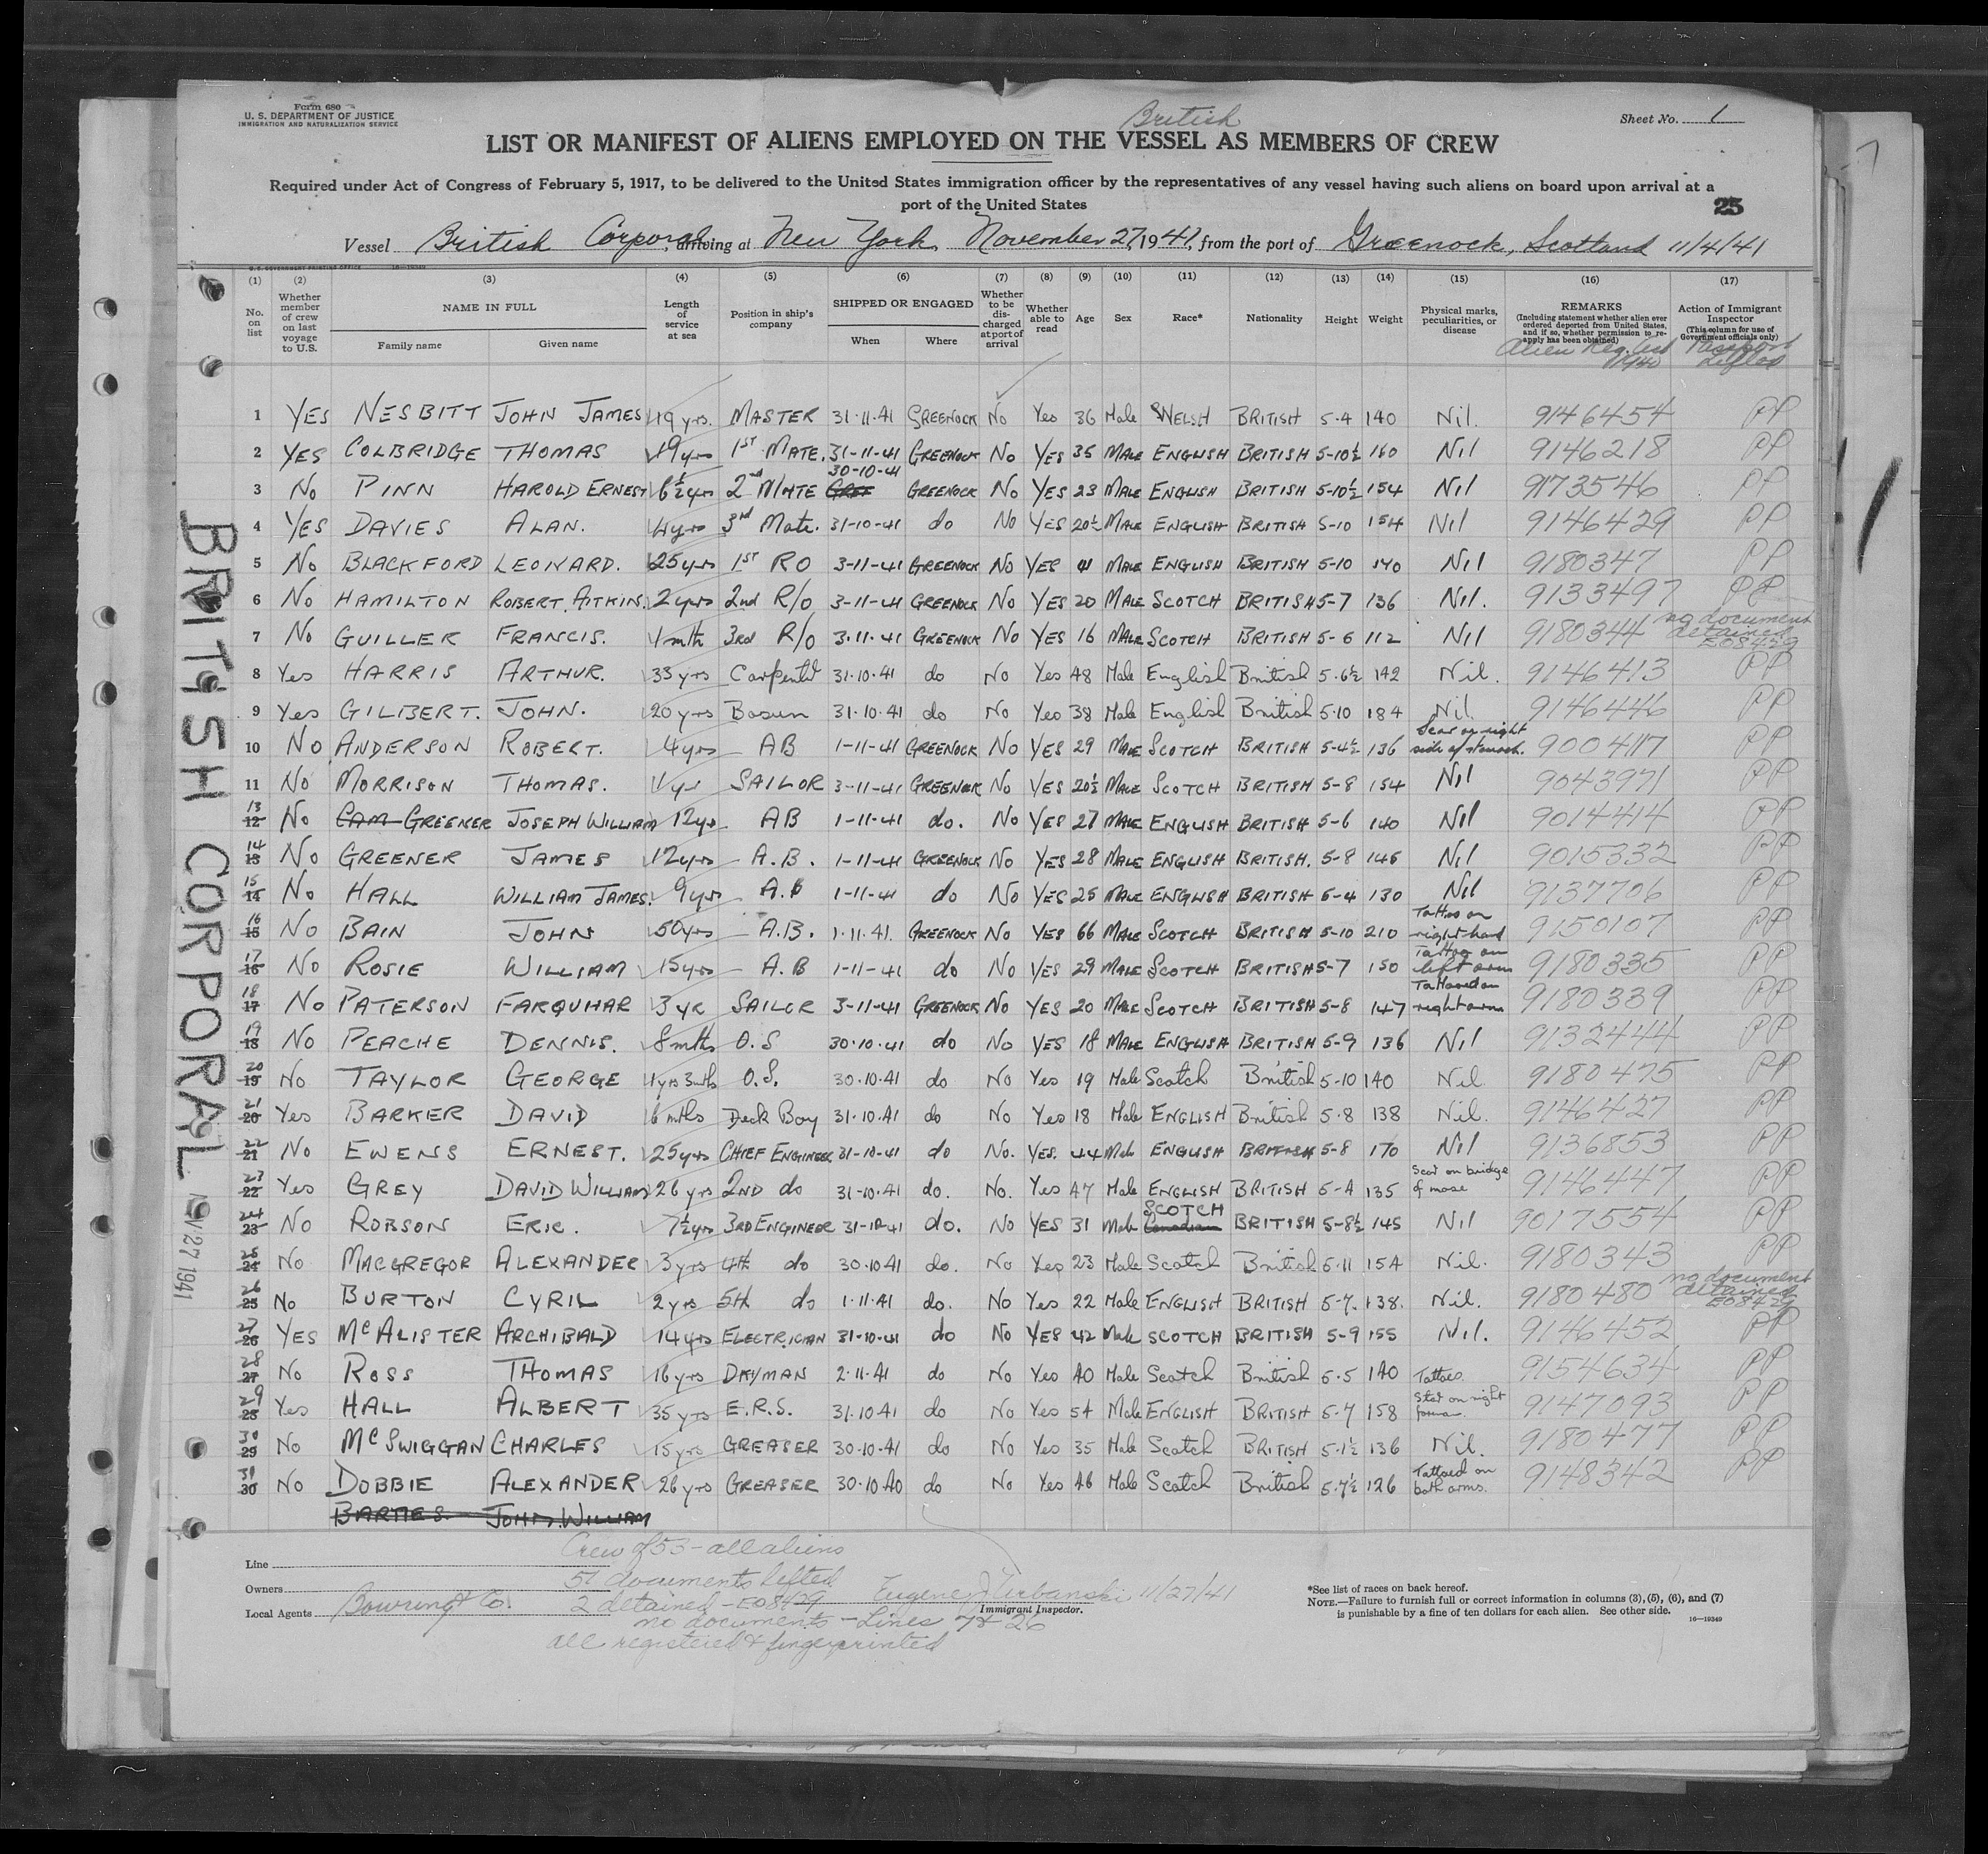 Form 680
U. S. DEPARTMENT OF JUSTICE
IMMIGRATION AND NATURALIZATION SERVICE
British
Sheet No. 1
LIST OR MANIFEST OF ALIENS EMPLOYED ON THE VESSEL AS MEMBERS OF CREW
Required under Act of Congress of February 5, 1917, to be delivered to the United States immigration officer by the representatives of any vessel having such aliens on board upon arrival at a
port of the United States
25
Vessel British Corporal, arriving at New York, November 27, 1941, from the port of Greenock, Scotland 11/4/41
U. S. GOVERNMENT PRINTING OFFICE 16—19349
(1) (2) (3) (4) (5) (6) (7) (8) (9) (10) (11) (12) (13) (14) (15) (16) (17)
No. on list
Whether member of crew on last voyage to U.S.
NAME IN FULL
Family name Given name
Length of service at sea
Position in ship's company
SHIPPED OR ENGAGED
When Where
Whether to be discharged at port of arrival
Whether able to read
Age Sex Race* Nationality Height Weight
Physical marks, peculiarities, or disease
REMARKS
(Including statement whether alien ever ordered deported from United States, and if so, whether permission to re-apply has been obtained)
Alien Reg. Act 1940
Action of Immigrant Inspector
(This column for use of Government officials only)
Passport Lifted
1 YES NESBITT JOHN JAMES 19 yrs. MASTER 31-11-41 GREENOCK No Yes 36 Male WELSH BRITISH 5-4 140 Nil. 9146454 PP
2 YES COLBRIDGE THOMAS 19 yrs 1ST MATE. 31-11-41 GREENOCK No YES 35 MALE ENGLISH BRITISH 5-10½ 160 Nil 9146218 PP
3 No PINN HAROLD ERNEST 6½ yrs 2nd MATE 30-10-41 GREENOCK No YES 23 MALE ENGLISH BRITISH 5-10½ 154 Nil 9173546 PP
4 YES DAVIES ALAN. 4 yrs 3rd Mate. 31-10-41 do No YES 20½ MALE ENGLISH BRITISH 5-10 154 Nil 9146429 PP
5 No BLACKFORD LEONARD. 25 yrs 1ST RO 3-11-41 GREENOCK No YES 41 MALE ENGLISH BRITISH 5-10 140 Nil 9180347 PP
6 No HAMILTON ROBERT. AITKIN. 2 yrs 2nd R/o 3-11-41 GREENOCK No YES 20 MALE SCOTCH BRITISH 5-7 136 Nil. 9133497 PP
7 No GUILLER FRANCIS. 4 mth 3rd R/O 3.11.41 GREENOCK No YES 16 MALE SCOTCH BRITISH 5-6 112 Nil 9180344 no document detained E08429
8 Yes HARRIS ARTHUR. 33 yrs Carpenter 31.10.41 do No Yes 48 Male English British 5.6½ 142 Nil. 9146413 PP
9 Yes GILBERT. JOHN. 20 yrs Bosun 31.10.41 do No Yes 38 Male English British 5.10 184 Nil. 9146446 PP
10 No ANDERSON ROBERT. 4 yrs AB 1-11-41 GREENOCK No YES 29 MALE SCOTCH BRITISH 5-4½ 136 Scar on right side of stomach. 9004117 PP
11 No MORRISON THOMAS. 1 yr SAILOR 3-11-41 GREENOCK No YES 20½ MALE SCOTCH BRITISH 5-8 154 Nil 9043971 PP
13 12 No CAM GREENER JOSEPH WILLIAM 12 yrs AB 1-11-41 do. No YES 27 MALE ENGLISH BRITISH 5-6 140 Nil 9014414 PP
14 13 No GREENER JAMES 12 yrs A.B. 1-11-41 GREENOCK No YES 28 MALE ENGLISH BRITISH. 5-8 146 Nil 9015332 PP
15 14 No HALL WILLIAM JAMES. 9 yrs A.B 1-11-41 do No YES 25 MALE ENGLISH BRITISH 5-4 130 Nil 9137706 PP
16 15 No BAIN JOHN 50 yrs A.B. 1.11.41. GREENOCK No YES 66 MALE SCOTCH BRITISH 5-10 210 Tattoo on right hand 9150107 PP
17 16 No ROSIE WILLIAM 15 yrs A.B 1-11-41 do No YES 29 MALE SCOTCH BRITISH 5-7 150 Tattoo on left arm 9180335 PP
18 17 No PATERSON FARQUHAR 3 yr SAILOR 3-11-41 GREENOCK No YES 20 MALE SCOTCH BRITISH 5-8 147 Tattooed on right arm 9180339 PP
19 18 No PEACHE DENNIS. 8 mths O.S 30.10.41 do No YES 18 MALE ENGLISH BRITISH 5-9 136 Nil 9132444 PP
20 19 No TAYLOR GEORGE 1 yr 3 mths O.S. 30.10.41 do No Yes 19 Male Scotch British 5-10 140 Nil. 9180475 PP
21 20 Yes BARKER DAVID 6 mths Deck Boy 31.10.41 do No Yes 18 Male ENGLISH British 5.8 138 Nil. 9146427 PP
22 21 No EWENS ERNEST. 25 yrs CHIEF ENGINEER 31-10-41 do No. YES. 44 Male ENGLISH BRITISH 5-8 170 Nil 9136853 PP
23 22 Yes GREY DAVID WILLIAM 26 yrs 2ND do 31-10-41 do. No. Yes 47 Male ENGLISH BRITISH 5-4 135 Scar on bridge of nose 9146447 PP
24 23 No ROBSON ERIC. 7½ yrs 3RD ENGINEER 31-10-41 do. No YES 31 Male Canadian SCOTCH BRITISH 5-8½ 145 Nil 9017554 PP
25 24 No MACGREGOR ALEXANDER 3 yrs 4th do 30.10.41 do. No Yes 23 Male Scotch British 5.11 154 Nil. 9180343 PP
26 25 No BURTON CYRIL 2 yrs 5th do 1.11.41 do. No Yes 22 Male ENGLISH BRITISH 5-7. 138. Nil. 9180480 no document detained E08429
27 26 YES McALISTER ARCHIBALD 14 yrs ELECTRICIAN 31-10-41 do No YES 42 Male SCOTCH BRITISH 5-9 155 Nil. 9146452 PP
28 27 No ROSS THOMAS 16 yrs DKYMAN 2.11.41 do No Yes 40 Male Scotch British 5.5 140 Tattoo. 9154634 PP
29 28 Yes HALL ALBERT 35 yrs E.R.S. 31.10.41 do No Yes 54 Male ENGLISH BRITISH 5.7 158 on right 9147093 PP
30 29 No McSWIGGAN CHARLES 15 yrs GREASER 30.10.41 do No Yes 35 Male Scotch BRITISH 5.1½ 136 Nil. 9180477 PP
31 30 No DOBBIE ALEXANDER 26 yrs GREASER 30.10.40 do No Yes 46 Male Scotch British 5.7½ 126 Tattoed on both arms. 9148342 PP
BARNES. JOHN. WILLIAM
BRITISH CORPORAL
NOV 27 1941
Line
Owners
Local Agents Bowring & Co.
Crew of 53 - all aliens
51 documents lifted
2 detained - E08429
no documents - Lines 7 & 26
all registered & fingerprinted
Eugene J Urbanski 11/27/41
Immigrant Inspector.
*See list of races on back hereof.
NOTE.—Failure to furnish full or correct information in columns (3), (5), (6), and (7)
is punishable by a fine of ten dollars for each alien. See other side. 16—19349